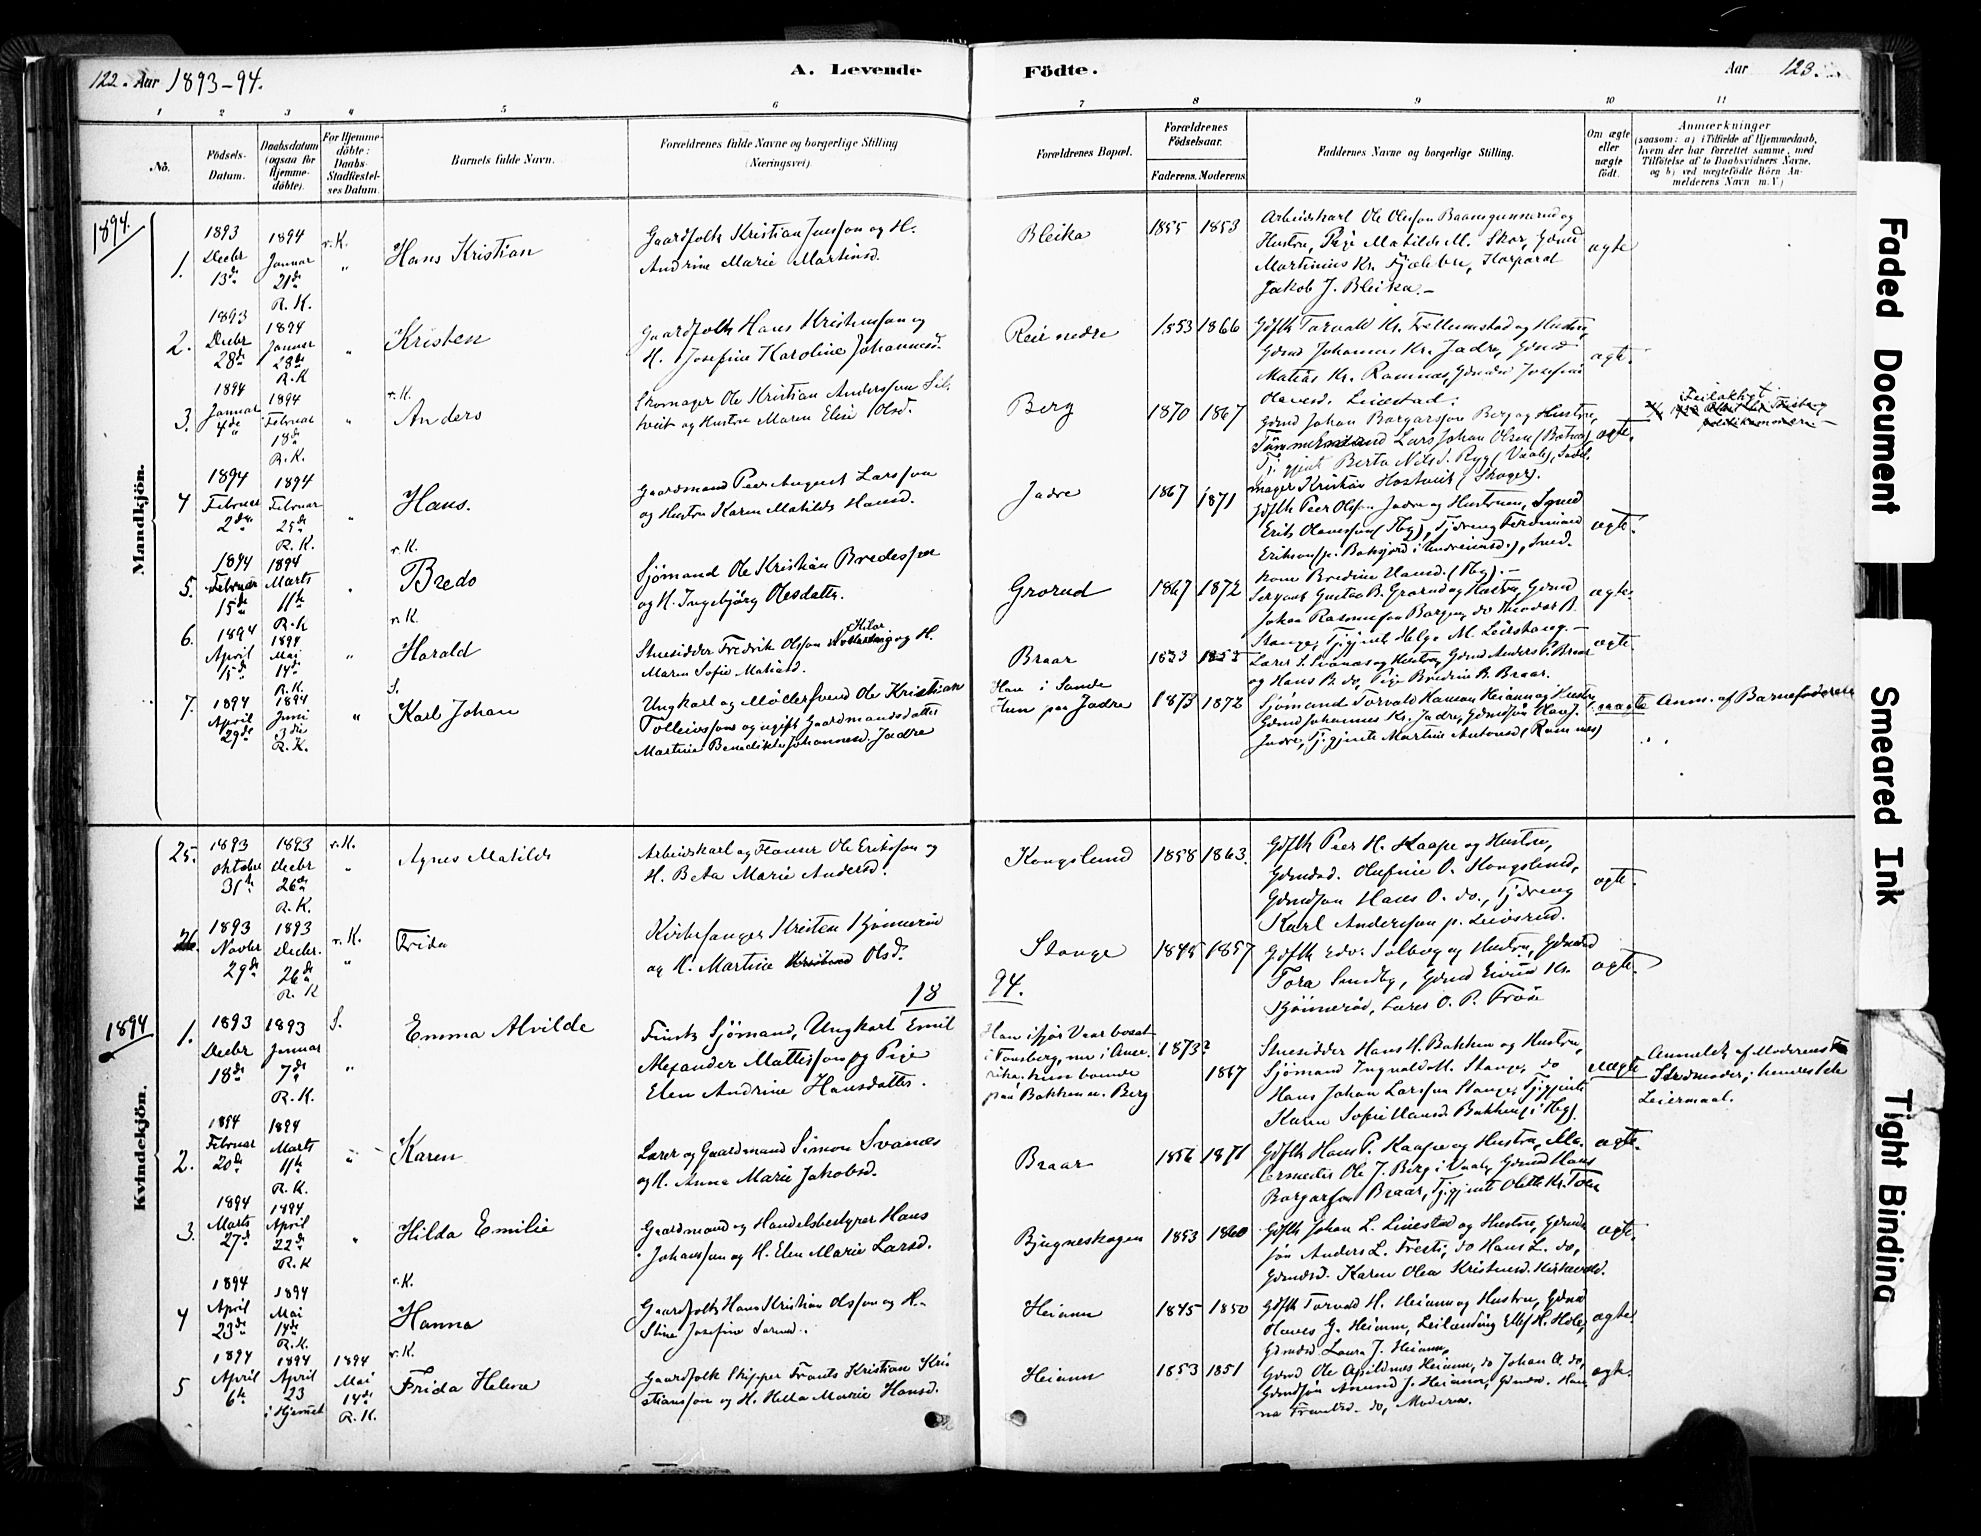 122. Aar 1893-94.
A. Levende Födte.
Aar 123.
1 2 3 4 5 6 7 8 9 10 11
No.
Födsels-Datum.
Daabsdatum (ogsaa for Hjemme-döbte).
For Hjemme-döbte: Daabs-Stadfæstel-ses Datum.
Barnets fulde Navn.
Forældrenes fulde Navne og borgerlige Stilling (Næringsvei)
Forældrenes Bopæl.
Forældrenes Födselsaar.
Faderens. Moderens.
Faddernes Navne og borgerlige Stilling.
Om ægte eller uægte födt.
Anmærkninger
(saasom: a) i Tilfælde af Hjemmedaab, hvem der har forrettet samme, med Tilföielse af to Daabsvidners Navne. og b) ved uægtefödte Börn An-melderens Navn m.V.)
1894.
Mandkjön.
1.
1893 Decbr 13de
1894 Januar 21de R. K.
r. K. "
Hans Kristian
Gaardfolk Kristian Jensson og H.
Andrine Marie Martinsd.
Bleika
1855 1853
Arbeidskarl Ole Olesson Baamgunnerud og
Hustru, Pige Matilde M. Skar, Gdmd
Martinius Kr. Fjeldbu, Korporal
Jakob J. Bleika.-
ægte
2.
1893 Decbr 28de
1894 Januar 28de R. K
"
Kristen
Gaardfolk Hans Kristensson og
H. Josefine Karoline Johannesd.
Reie nedre
1853 1866
Gdflk Torvald Kr. og Hustru,
Gdmd Johannes Kr. Jadre, Gdmd
Matias Kr. Ramnæs, Josefine
Leirstad.
ægte.
3.
1894 Januar 4de
1894 Februar 18de R. K.
"
r. K.
Anders
Skomager Ole Kristian Andersson
tveit og Hustru Maren Elise Olsd.
Berg
1870 1867
Gdmd Johan Borgarsson Berg og Hustru,
Tömmermand Lars Johan Olsen
Tj. gjent Berta Nilsd. Ryg (Vaale), Sadel
mager Kristian Hostveit (Skoger).
ægte.
Feilaktigt
4
1894 Februar 2den
1894 Februar 25de R. K.
"
Hans.
Gaardmand Peer August Larsson
og Hustru Karen Matilde Hansd.
Jadre
1867 1871
Gdflk Peer Olsson Jadre og Hustruen, Gdmd
Erik Olavesson (Tbg), Tj.dreng Ferdinand
Erikson
kone Bredine Hansd. (Tbg).-
ægte.
5.
1894 Februar 15de
1894 Marts 11te R. K
"
r. K.
Bredo
Sjömand Ole Kristian Bredesson
og H. Ingebjörg Olesdatter.
Grorud
1867 1872
Sergeant Gustav B. Grorud og Hustru, Gdmd
Johan Rasmusson Borgen, do Theodor B.
Stange, Tj.gjent Helga M. Leirstang.-
ægte.
6.
1894 April 15de
1894 Mai 14de R. K.
"
r. K.
Harald
Stuesidder Fredrik Olsson og H.
Maren Sofie Matiasd.
Braar
1853 1855
Lærer S. Svanæs og Hustru, Gdmd Anders P. Braar
og Hans B. do, Pige Bredine B. Braar.
ægte
7.
1894 April 29de
1894 Juni 3die R. K.
"
S.
Karl Johan
Ungkarl og Möllersvend Ole Kristian
Tolleivsson og ugift Gaardmandsdatter
Martine Benedikte Johannesd. Jadre
Han i Sande
Hun paa Jadre
1873 1872
Sjömand Torvald Hansen Heiann og Hustru,
Gdmd Johannes Kr. Jadre, Gdmdsön Hans J.
Jadre, Tj.gjente Martine Antonsd (Ramnæs)
uægte
Anm. af Barnefaderen
Kvindekjön.
25.
1893 Oktober 31te
1893 Decbr 26de R. K.
r. K. "
Agnes Matilde
Arbeidskarl og Fløter Ole Eriksson og
H. Berta Marie Andersd.
Kongslund
1858 1863.
Gdflk Peer H. Haape og Hustru,
Gdmdsd. Olufine O. Kongslund,
Gdmdsön Hans O. do., Tj.dreng
Karl Andersson p. Leiosrud.
ægte.
26.
1893 Novbr 29de
1893 Decbr. 26de R. K
r. K. "
Frida
Kirkesanger Kristen Bjönnerød
og H. Martine Olsd.
Stange
1845 1857
Gdflk Edv. Solberg og Hustru, Gdmd
Tora Sundby, Gdmd Eivind Kr.
Bjönnerød, Lærer O. P. Troie
ægte.
18 94.
1894
1.
1893 Decbr 18de
1893 Januar 7de R. K.
S. "
Emma Alvilde
Finsk Sjömand, Ungkarl Emil
Alexander Mattisson og Pige
Elen Andrine Hansdatter.
Han ifjor Vaar bosat
i Tønsberg, nu i Ame
rika, hun boende
paa Bakken u. Berg
1873? 1867
Stuesidder Hans H. Bakken og Hustru,
Sjömand Ingvald M. Stange, do
Hans Johan Larsson Stange, Tj.gjente
Karen Sofie Hansd. Bakken (i Tbg).
uægte
Anmeldt af Moderens
Jordmoder; hendes 1ste
Leiermaal.
2.
1894 Februar 20de
1894 Marts 11te R. K.
"
Karen
Lærer og Gaardmand Simon Svanæs
og H. Anna Marie Jakobsd.
Braar
1856 1871
Gdflk Hans P. Haape og Hustru, Ma
lermester Ole J. Berg i Vaale, Gdmd Hans
Borgarson Braar, Tj.gjente Olette Kr. Toen
ægte.
3.
1894 Marts 27de
1894 April 22de R. K
"
Hilda Emilie
Gaardmand og Handelsbestyrer Hans
Johansson og H. Elen Marie Larsd.
Bjugneskogen
1853 1860
Gdflk Johan L. Linestad og Hustru, Gdmds
sön Anders L. Fresti, do Hans L. do,
Gdmdsd. Karen Olea Kristensd. Kirkevold.
ægte.
4
1894 April 23de
1894 Mai 14de R. K.
r. K.
Hanna
Gaardfolk Hans Kristian Olsson og H.
Stine Josefine
Heiann
1845 1850
Gdflk Torvald H. Heiann og Hustru, Gdmd
Hans G. Heiann, Leilænding Ellef H. Hole,
Gdmdsd. Laura J. Heiann.
ægte
5
1894 April 6te
1894 April 23 i Hjemmet
1894 Mai 14de R. K.
r. K.
Frida Helene
Gaardfolk Skipper Frants Kristian Kris
tiansson og H. Helle Marie Hansd.
Heiann
1853 1851
Gdmd Ole Heiann, do Johan A. do,
Gdmdsön Amund J. Heiann, Gdmdsd. Han
na do, Moderen.
ægte.
Faded Document
Smeared Ink
Tight Binding